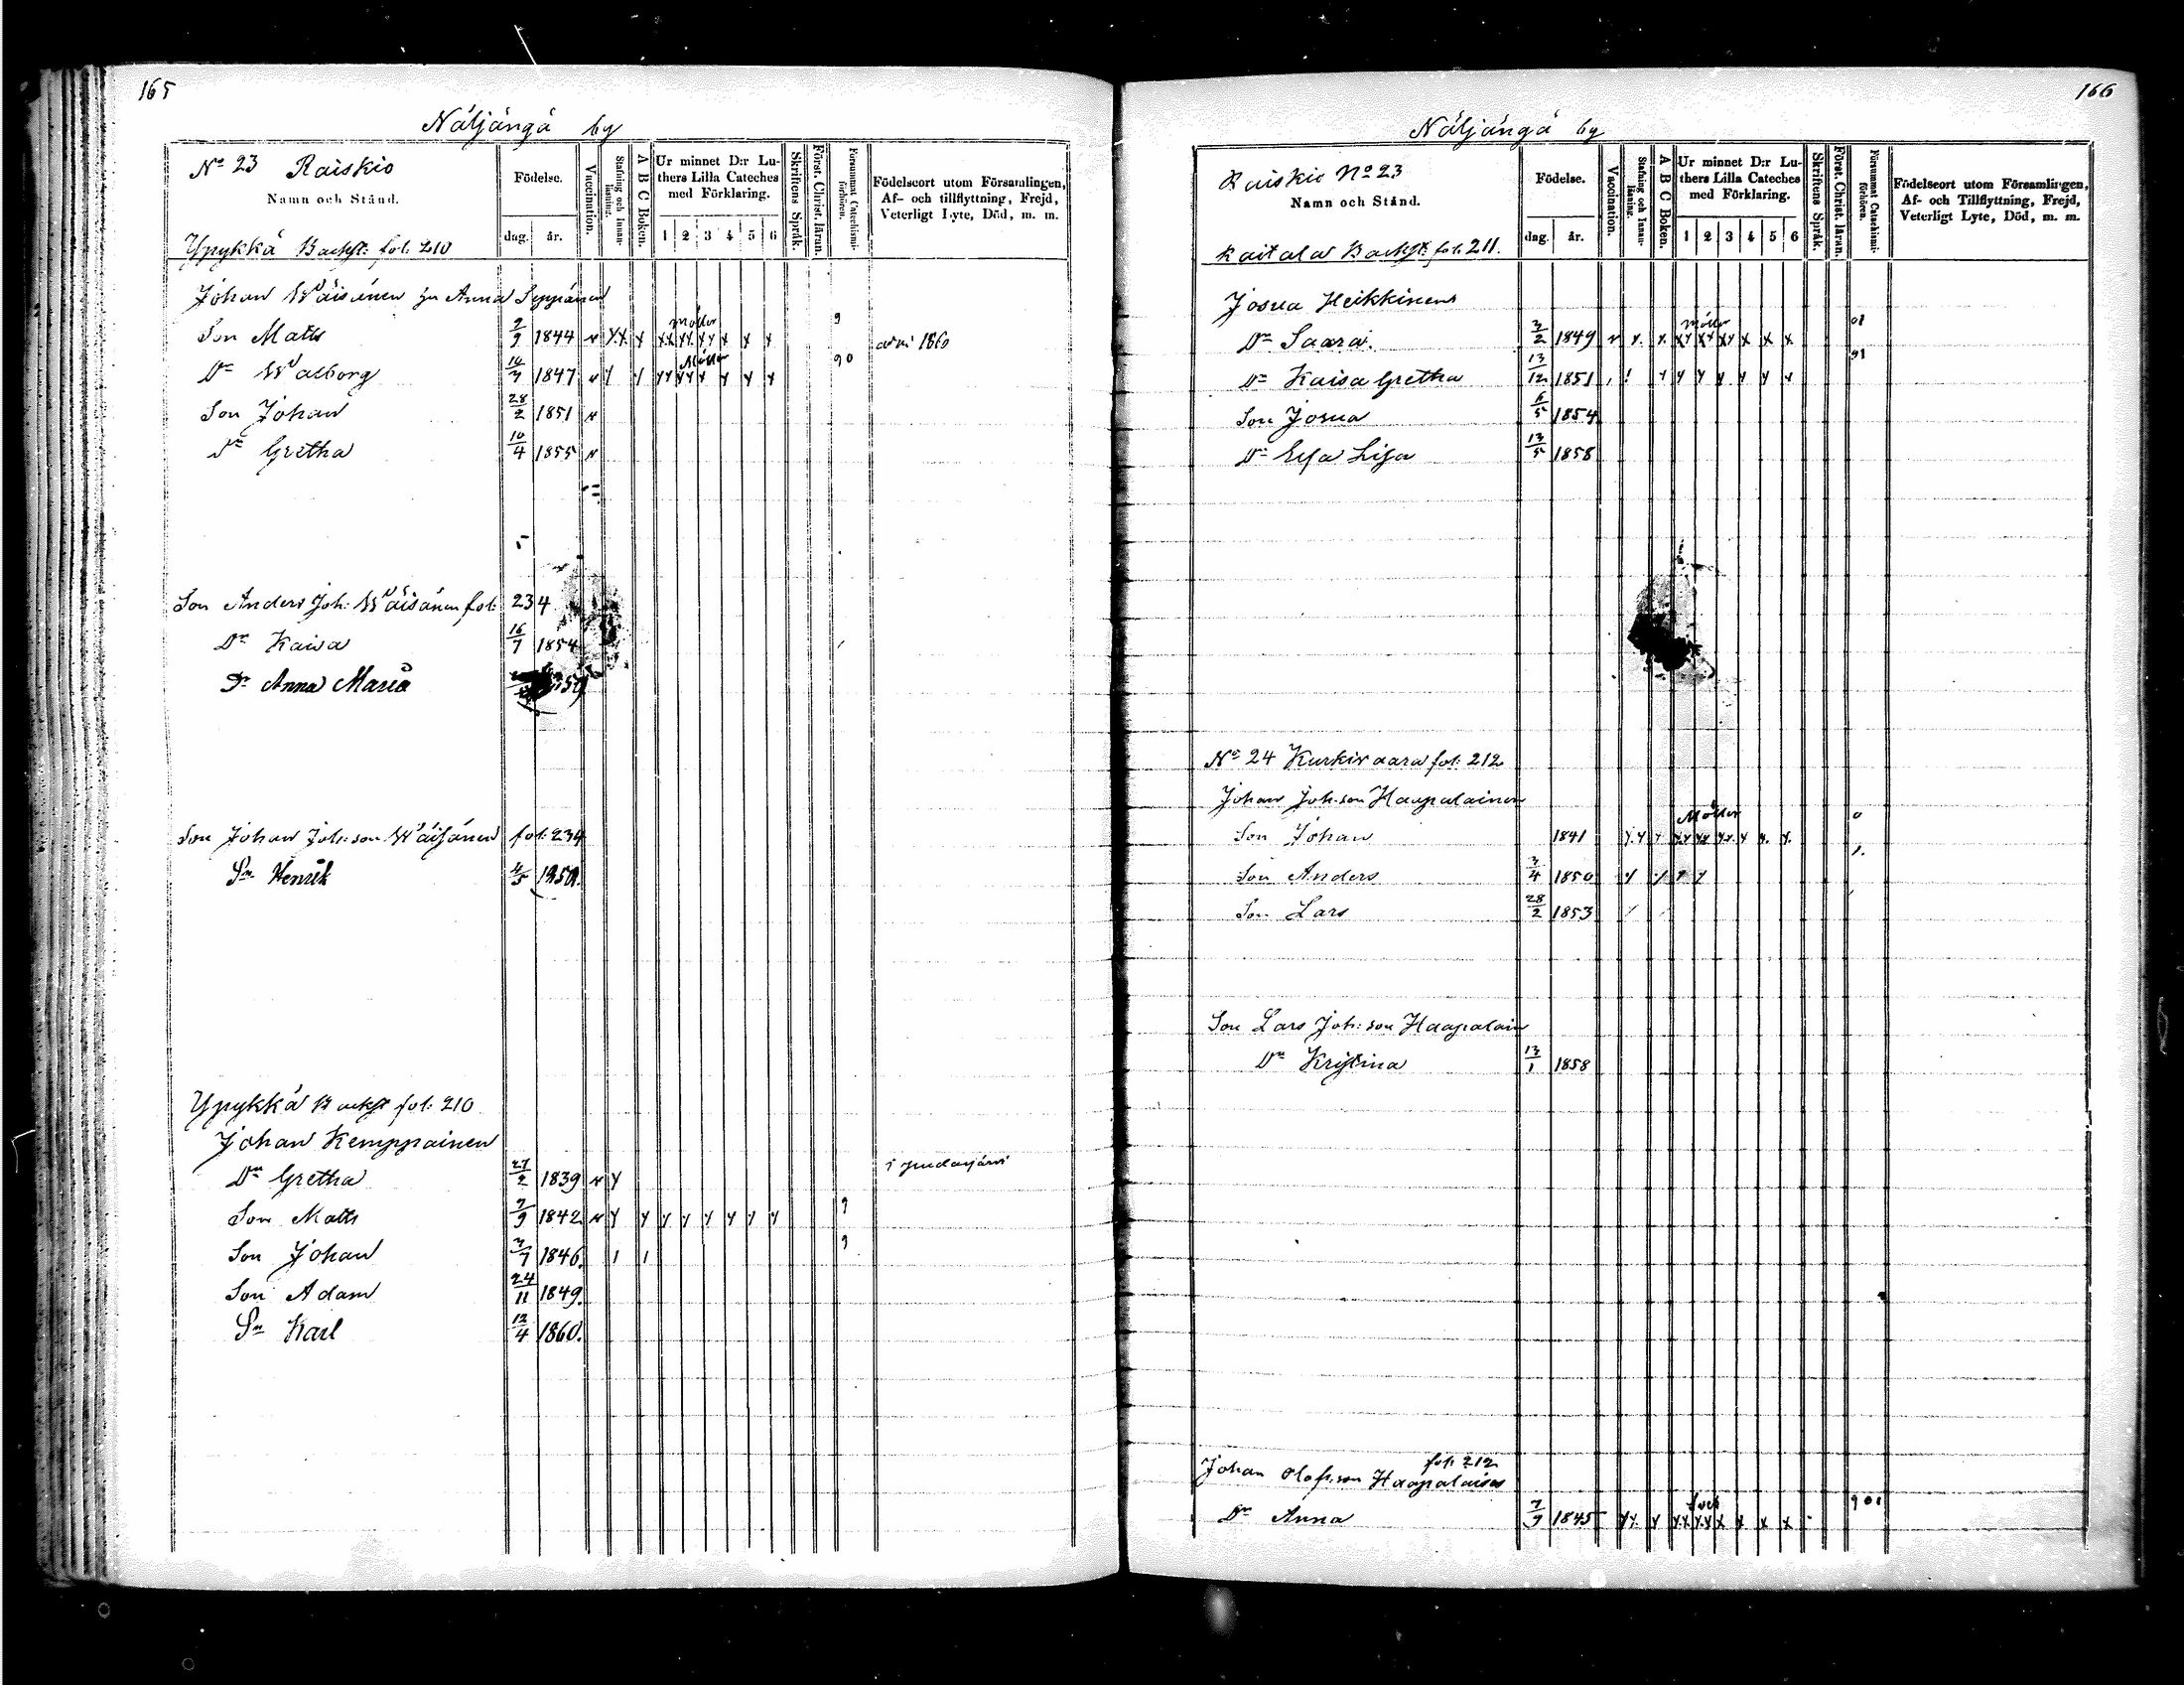 165
Näljängä by
No 23 Raiskio
Namn och Stånd.
Födelse.
dag. år.
Vaccination.
Stafning och Innanläsning.
A B C Boken.
Ur minnet D:r Luthers Lilla Cateches med Förklaring.
1 2 3 4 5 6
Skriftens Språk.
Först. Christ. läran.
Försummat Catechismiförhören.
Födelseort utom Församlingen,
Af- och tillflyttning, Frejd,
Veterligt Lyte, Död, m. m.
Ypykkä Backst: fol: 210
Johan Wäisänen hu Anna Seppänen
Son Matts 2/9 1844 1860
Dr Walborg 1847
Son Johan 28/2 1851
Dr Gretha 10/4 1855
Son Anders Joh: Wäisänen fol: 234
Dr Kaisa 16/7 1854
Dr Anna Maria
Son Johan Joh:son Wäisänen fol: 234
Sn Henrik
Ypykkä Backst fol: 210
Johan Kemppainen
Dr Gretha 27/2 1839 i Pudasjärvi
Son Matts 7/9 1842
Son Johan 3/7 1846.
Son Adam 24/11 1849.
Sn Karl 12/4 1860.
166
Näljängä by
Raiskio No 23
Namn och Stånd.
Födelse.
dag. år.
Vaccination.
Stafning och Innanläsning.
A B C Boken.
Ur minnet D:r Luthers Lilla Cateches med Förklaring.
1 2 3 4 5 6
Skriftens Språk.
Först. Christ. läran.
Försummat Catechismiförhören.
Födelseort utom Församlingen,
Af- och Tillflyttning, Frejd,
Veterligt Lyte, Död, m. m.
Raitala Backst: fol: 211.
Josua Heikkinen
Dr Saara 3/2 1849
Dr Kaisa Gretha 13/12 1851
Son Josua 6/5 1854
Dr Eva Lisa 13/5 1858
No 24 Kurkivaara fol: 212
Johan Joh:son Haapalainen
Son Johan 1841
Son Anders 3/4 1850
Son Lars 28/2 1853
Son Lars Joh:son Haapalain
Dr Kristina 13/1 1858
fol: 212
Johan Olofs:son Haapalainen
Dr Anna 7/9 1845